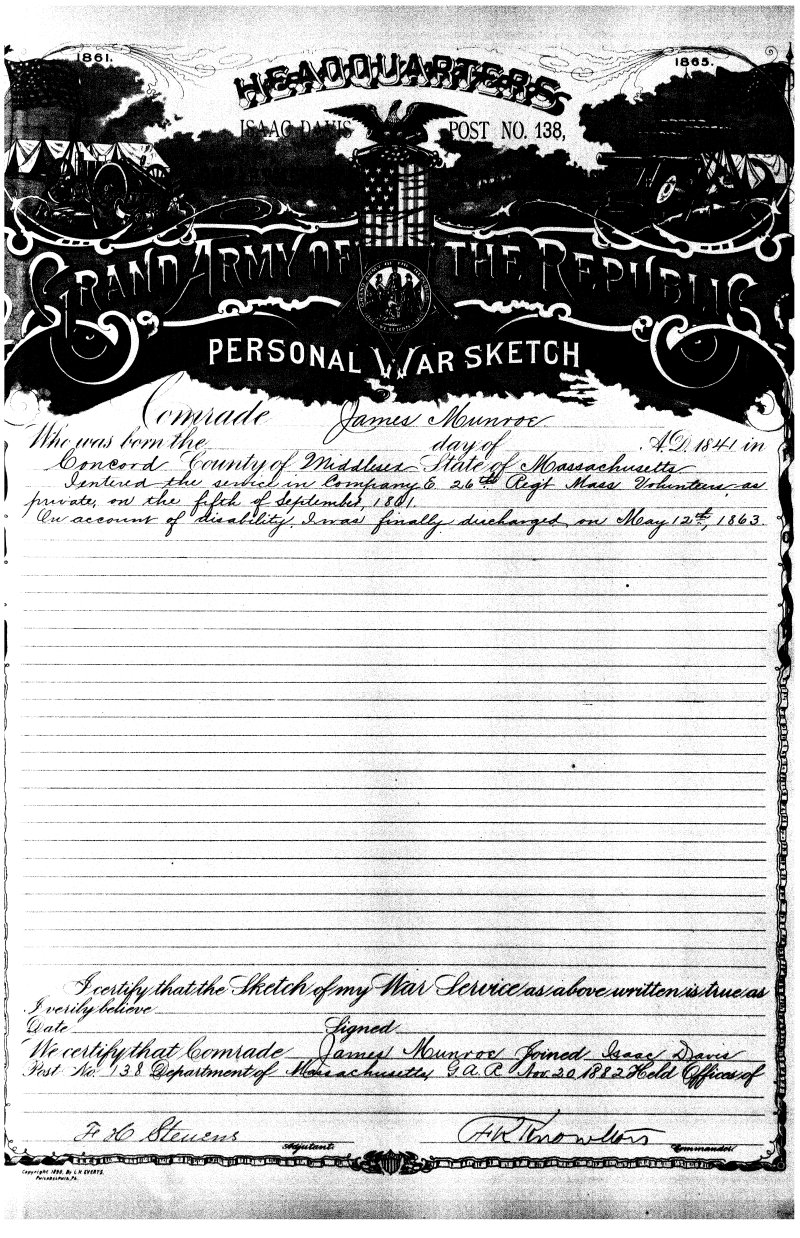 1861.
1865.
HEADQUARTERS
ISAAC DAVIS POST NO. 138,
GRAND ARMY OF THE REPUBLIC
PERSONAL WAR SKETCH
Comrade James Munroe
Who was born the day of A.D. 1841 in
Concord County of Middlesex State of Massachusetts
I entered the service in Company E. 26th Regt Mass Volunteers as
private, on the fifth of September, 1861.
On account of disability, I was finally discharged on May 12th, 1863.
I certify that the Sketch of my War Service as above written is true as
I verily believe
Date Signed
We certify that Comrade James Munroe Joined Isaac Davis
Post No. 138 Department of Massachusetts, G.A.R. Nov 20 1882 Held Offices of
F H Stevens Adjutant.
A K Knowlton Commander.
Copyright 1890. By L.H. EVERTS.
PHILADELPHIA, PA.